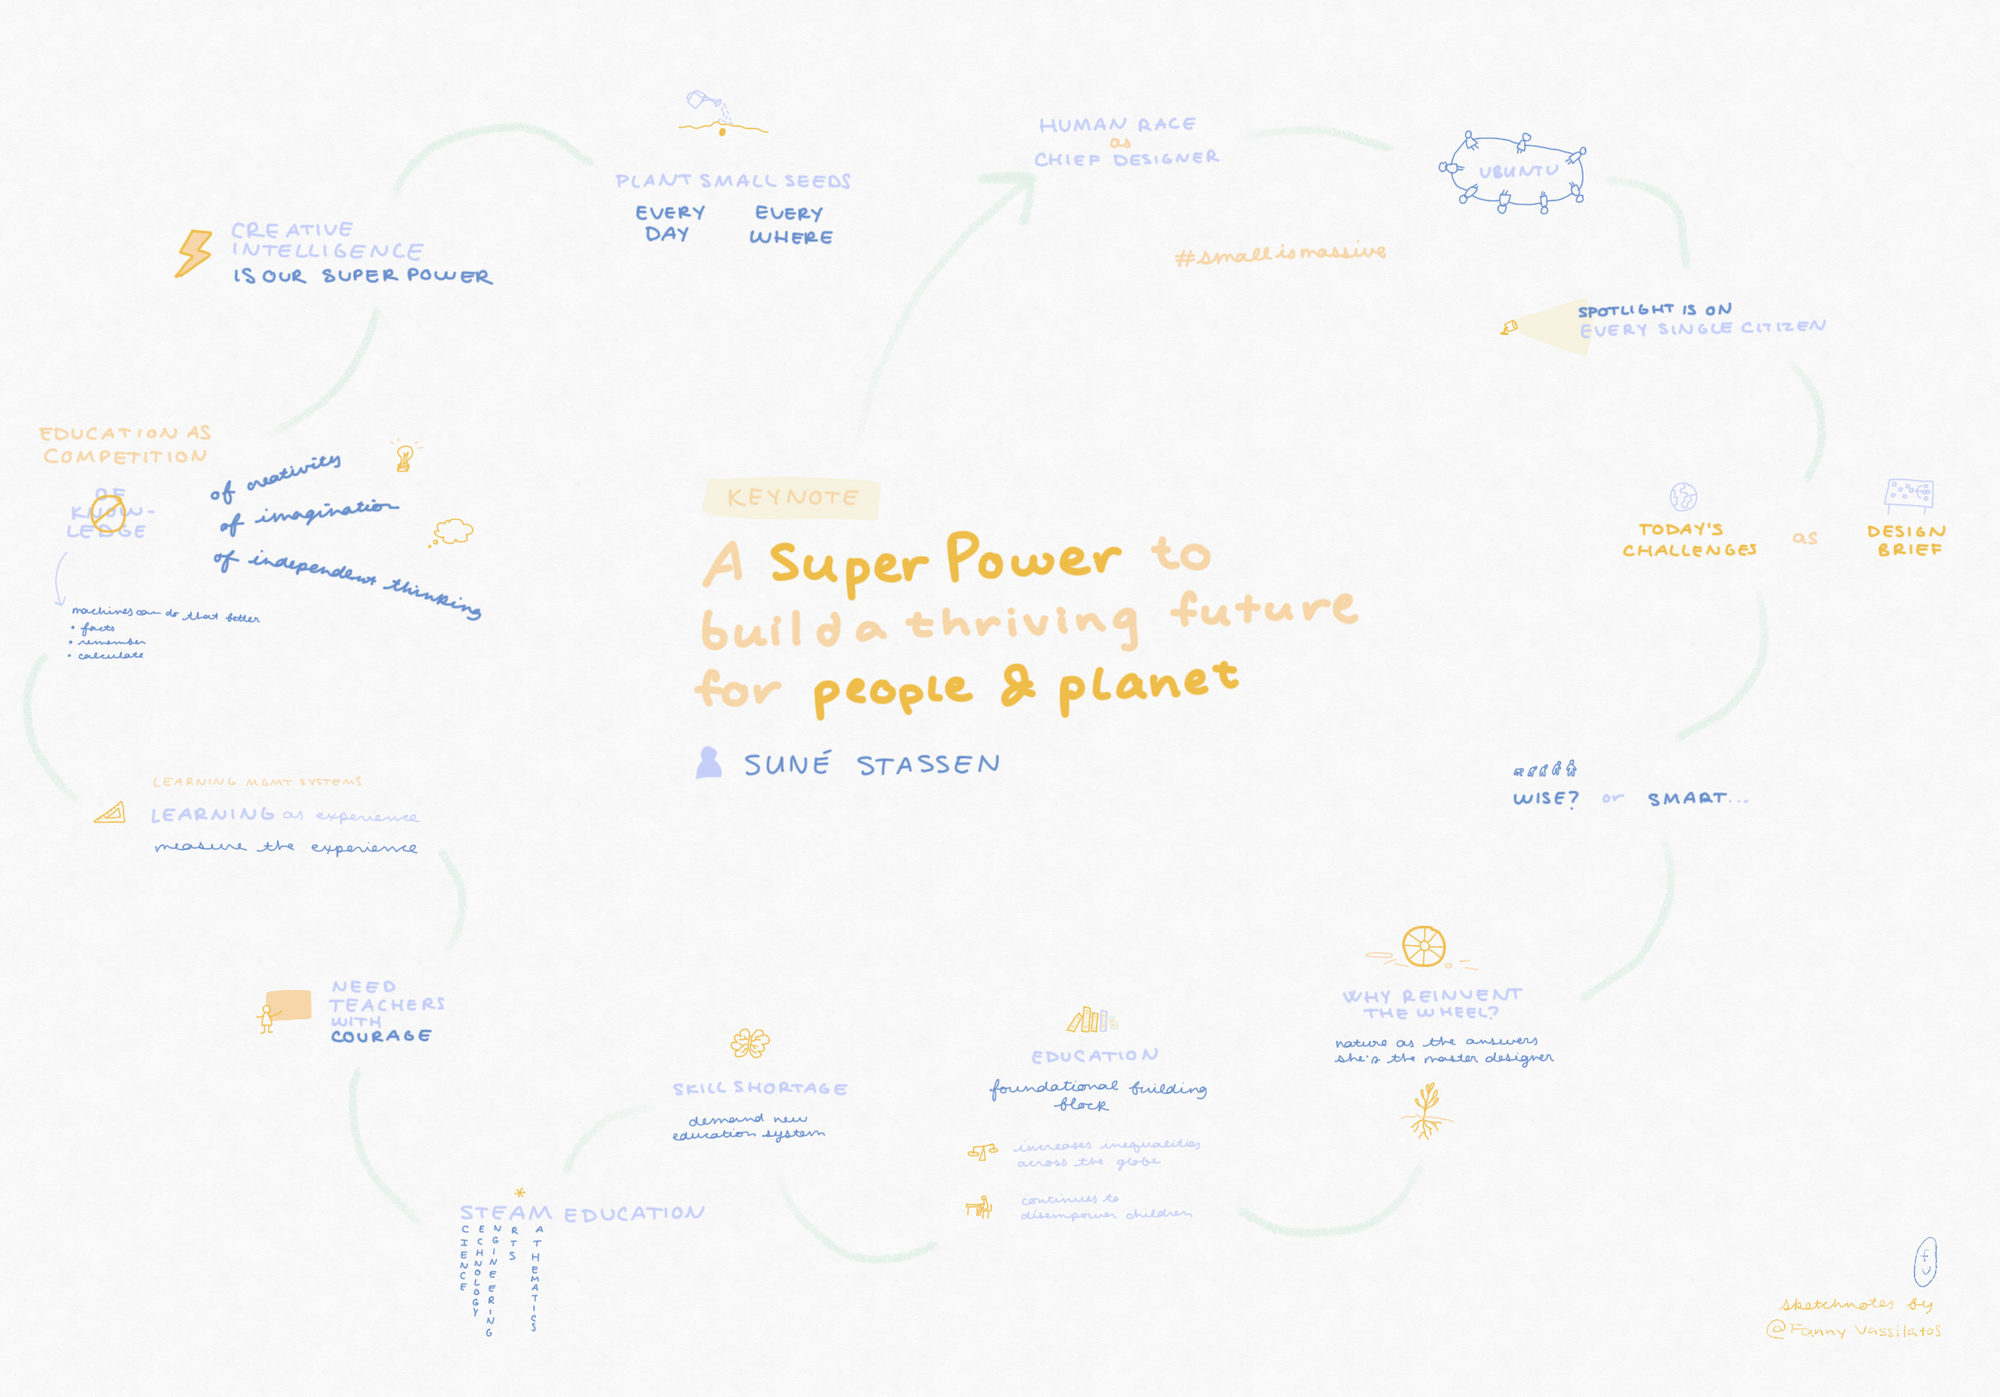 KEYNOTE
A Super Power to
build a thriving future
for people & planet
SUNÉ STASSEN
HUMAN RACE
as
CHIEF DESIGNER
UBUNTU
#smallismassive
SPOTLIGHT IS ON
EVERY SINGLE CITIZEN
TODAY'S
CHALLENGES
as
DESIGN
BRIEF
WISE? or SMART...
WHY REINVENT
THE WHEEL?
nature as the answers
she's the master designer
EDUCATION
foundational building
block
increases inequalities
across the globe
continues to
disempower children
SKILL SHORTAGE
demand new
education system
STEAM EDUCATION
CIENCE
ECHNOLOGY
NGINEERING
RTS
ATHEMATICS
NEED
TEACHERS
WITH
COURAGE
LEARNING MGMT SYSTEMS
LEARNING as experience
measure the experience
EDUCATION AS
COMPETITION
OF
KNOW-
LEDGE
of creativity
of imagination
of independent thinking
machines can do that better
• facts
• remember
• calculate
CREATIVE
INTELLIGENCE
IS OUR SUPER POWER
PLANT SMALL SEEDS
EVERY
DAY
EVERY
WHERE
sketchnotes by
@Fanny Vassilatos